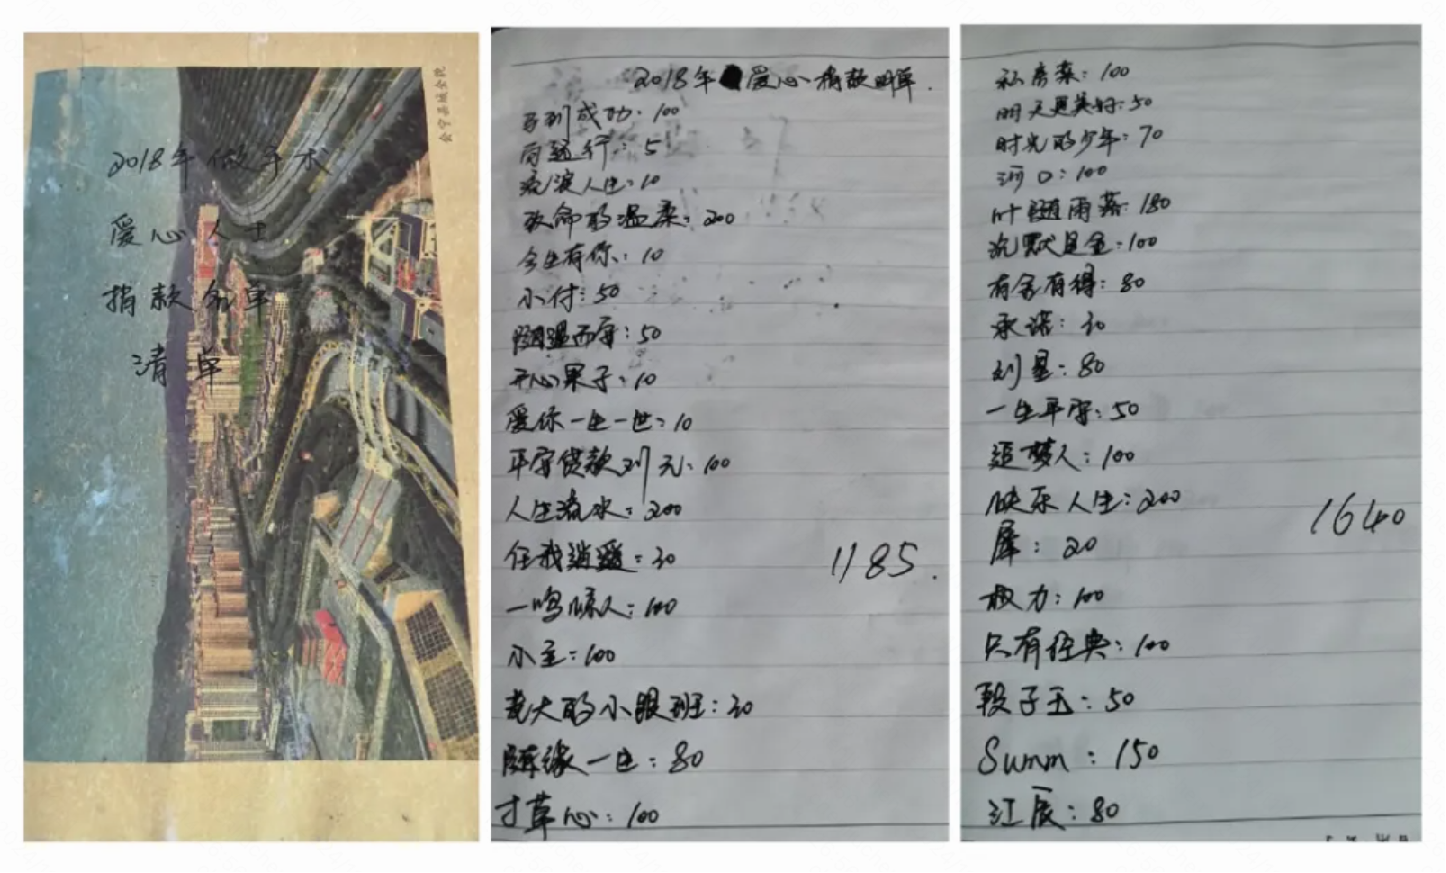 会宁县城全貌
2018年做手术
爱心人士
捐款名单
清单
2018年爱心捐款明单.
马到成功:100
向远行:5
流浪人生:10
致命的温柔:200
今生有你:10
小付:50
随遇而安:50
开心果子:10
爱你一生一世:10
平安贷款刘元:100
人生流水:200
任我逍遥:30
一鸣惊人:100
小主:100
老大的小跟班:30
随缘一生:80
寸草心:100
1185.
私房菜:100
明天更美好:50
时光的少年:70
河口:100
叶随雨落:180
沉默是金:100
有舍有得:80
承诺:30
刘星:80
一生平安:50
追梦人:100
快乐人生:200
犀:20
权力:100
只有经典:100
段子玉:50
Summ:150
江辰:80
1640